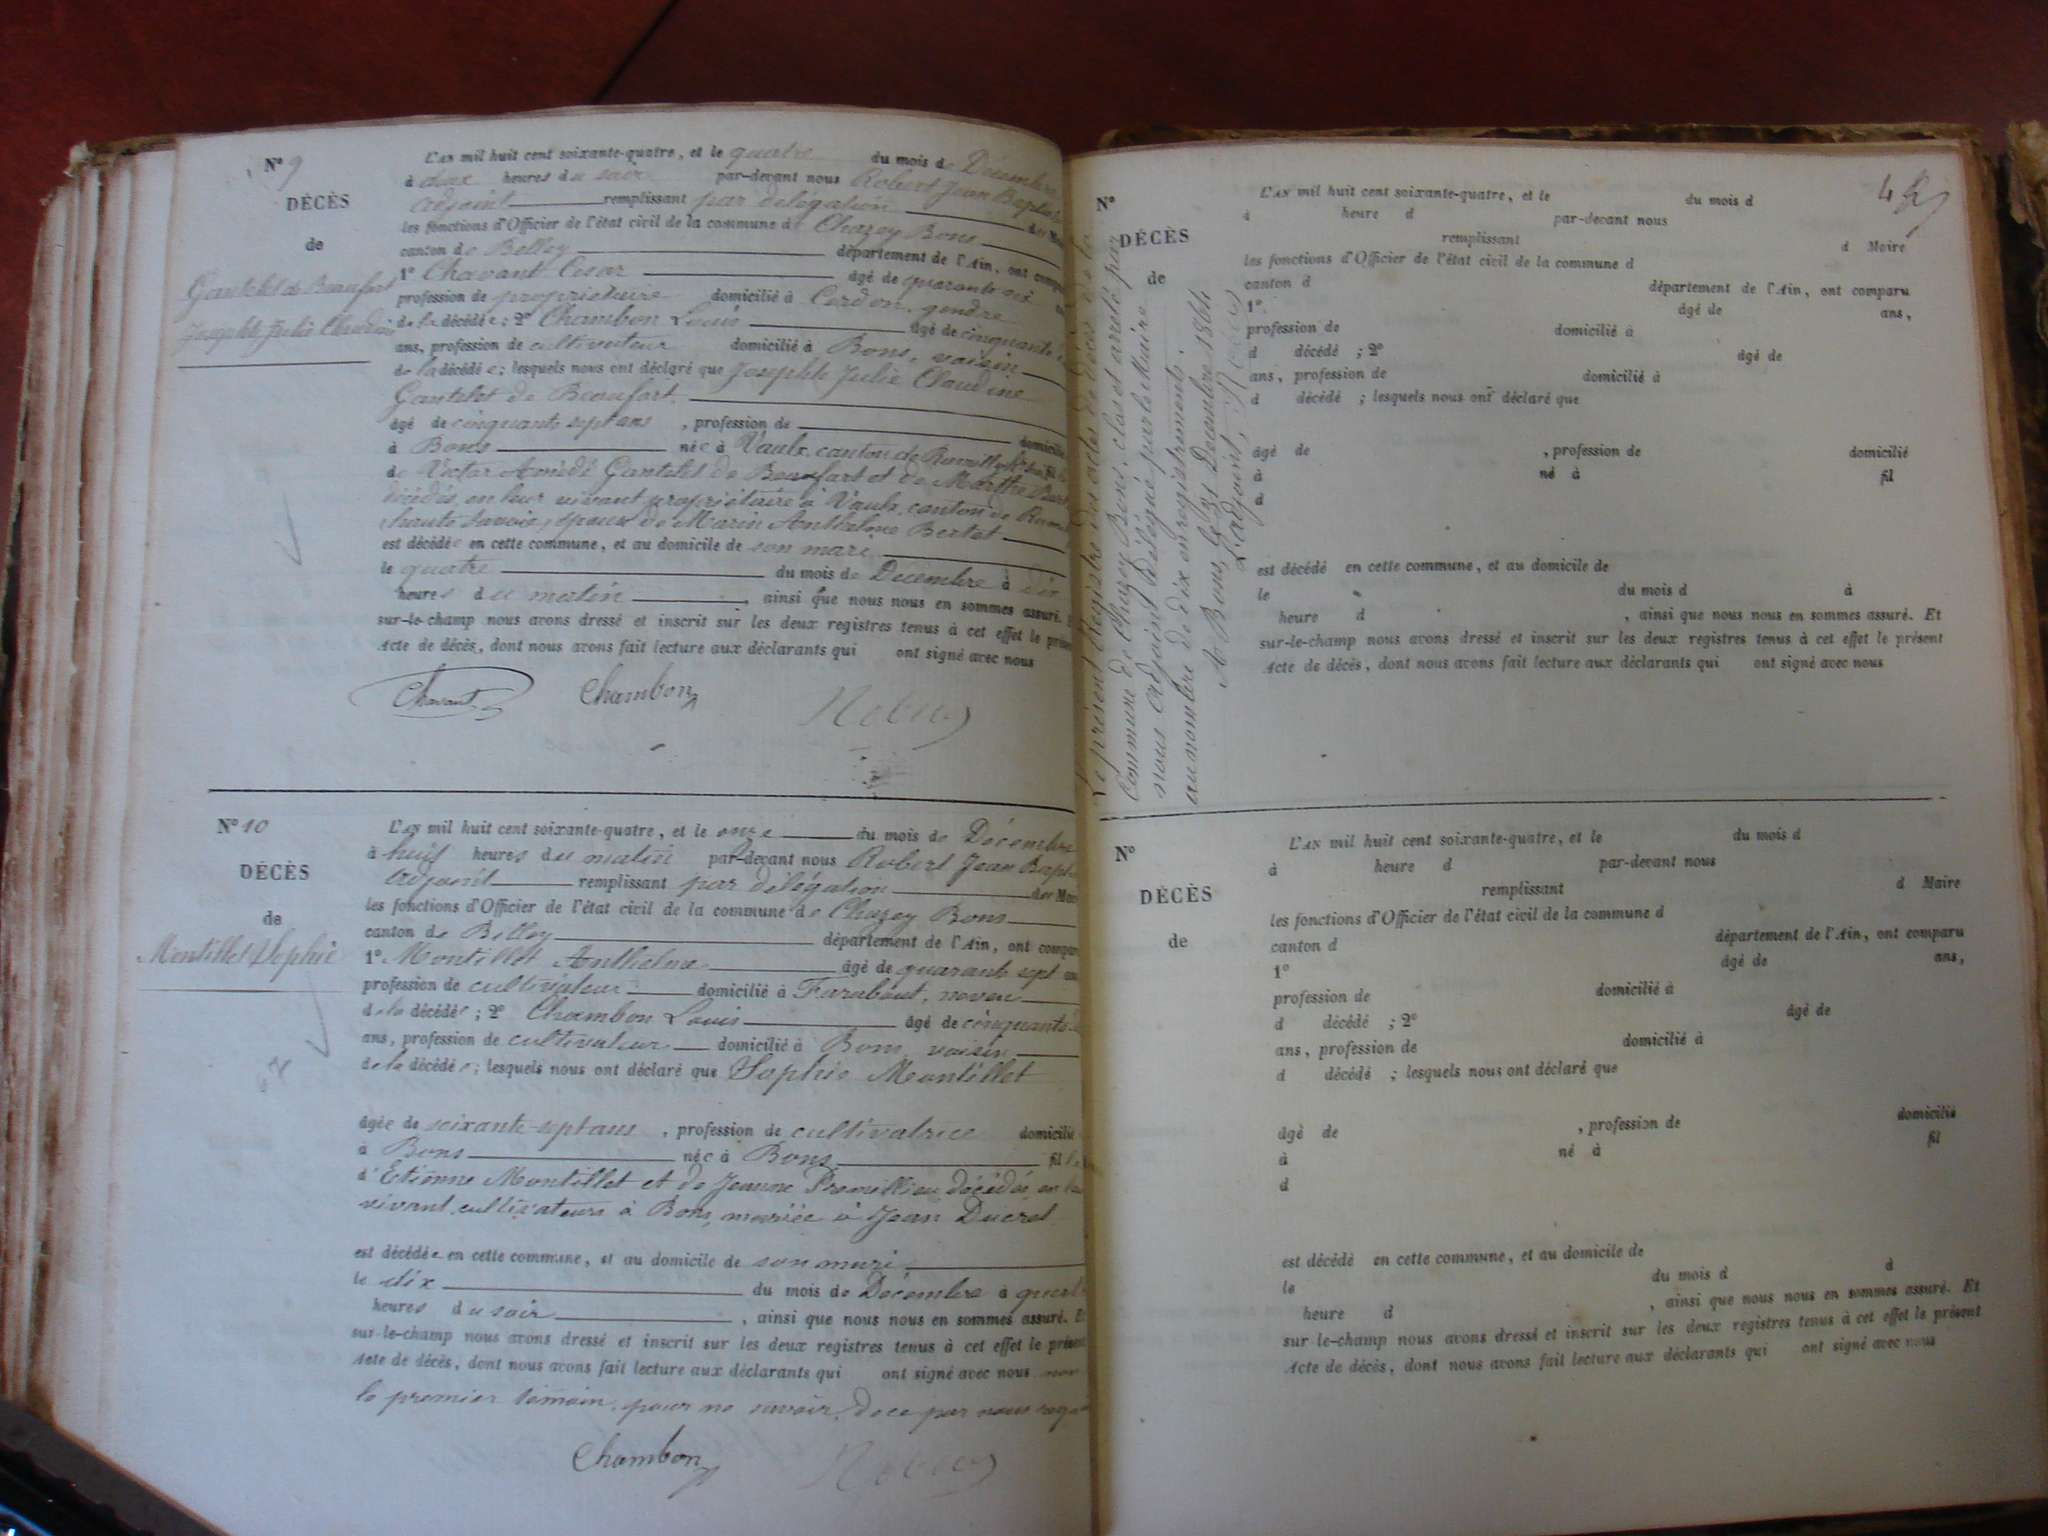 N° 9
DÉCÈS
de
Gantelet de Beaufort
Josephte Julie Claudine
L'AN mil huit cent soixante-quatre, et le quatre du mois de Décembre
à dix heures du soir par-devant nous Robert Jean Baptiste
adjoint remplissant par délégation du Maire
les fonctions d'Officier de l'état civil de la commune de Chazey Bons
canton de Belley département de l'Ain, ont comparu
1° Chavant Cesar âgé de quarante six
profession de propriétaire domicilié à Cordon, gendre
de la décédée; 2° Chambon Louis âgé de cinquante
ans, profession de cultivateur domicilié à Bons, voisin
de la décédée; lesquels nous ont déclaré que Josephte Julie Claudine
Gantelet de Beaufort
âgé de cinquante sept ans, profession de domicilié
à Bons née à Vaulx, canton de Rumilly
de Victor Amédé Gantelet de Beaufort et de Marthe
décédés, en leur vivant propriétaire à Vaulx, canton de
haute Savoie, épouse de Marin Anthelme Bertet
est décédée en cette commune, et au domicile de son mari
le quatre du mois de Décembre à dix
heures du matin, ainsi que nous nous en sommes assuré. E
sur-le-champ nous avons dressé et inscrit sur les deux registres tenus à cet effet le présent
Acte de décès, dont nous avons fait lecture aux déclarants qui ont signé avec nous
Chavant Chambon Robert
N° 10
DÉCÈS
de
Montillet Sophie
L'AN mil huit cent soixante-quatre, et le onze du mois de Décembre
à huit heures du matin par-devant nous Robert Jean Bapt
adjoint remplissant par délégation du Maire
les fonctions d'Officier de l'état civil de la commune de Chazey Bons
canton de Belley département de l'Ain, ont comparu
1° Montillet Anthelme âgé de quarante sept ans
profession de cultivateur domicilié à Farabout, neveu
de la décédée; 2° Chambon Louis âgé de cinquante
ans, profession de cultivateur domicilié à Bons, voisin
de la décédée; lesquels nous ont déclaré que Sophie Montillet
âgée de soixante-sept ans, profession de cultivatrice domicilié
à Bons née à Bons fille
d'Etienne Montillet et de Jeanne décédés en leur
vivant cultivateurs à Bons, mariée à Jean Ducret
est décédée en cette commune, et au domicile de son mari
le dix du mois de Décembre à quatre
heures du soir, ainsi que nous nous en sommes assuré. E
sur-le-champ nous avons dressé et inscrit sur les deux registres tenus à cet effet le présent
Acte de décès, dont nous avons fait lecture aux déclarants qui ont signé avec nous non
le premier témoin, pour ne savoir, de ce par nous requis
Chambon Robert
Le présent registre des actes de décès de la
Commune de Chazey Bons, clos et arrêté par
nous adjoint délégué par le Maire
au nombre de dix enregistrements.
A Bons, le 31 Décembre 1864
L'adjoint, Robert
N°
DÉCÈS
de
L'AN mil huit cent soixante-quatre, et le du mois d
à heure d par-devant nous
remplissant d Maire
les fonctions d'Officier de l'état civil de la commune d
canton d département de l'Ain, ont comparu
1° âgé de ans,
profession de domicilié à
d décédé ; 2° âgé de
ans, profession de domicilié à
d décédé ; lesquels nous ont déclaré que
âgé de , profession de domicilié
à né à fil
d
est décédé en cette commune, et au domicile de
le du mois d à
heure d , ainsi que nous nous en sommes assuré. Et
sur-le-champ nous avons dressé et inscrit sur les deux registres tenus à cet effet le présent
Acte de décès, dont nous avons fait lecture aux déclarants qui ont signé avec nous
N°
DÉCÈS
de
L'AN mil huit cent soixante-quatre, et le du mois d
à heure d par-devant nous
remplissant d Maire
les fonctions d'Officier de l'état civil de la commune d
canton d département de l'Ain, ont comparu
1° âgé de ans,
profession de domicilié à
d décédé ; 2° âgé de
ans, profession de domicilié à
d décédé ; lesquels nous ont déclaré que
âgé de , profession de domicilié
à né à fil
d
est décédé en cette commune, et au domicile de
le du mois d à
heure d , ainsi que nous nous en sommes assuré. Et
sur-le-champ nous avons dressé et inscrit sur les deux registres tenus à cet effet le présent
Acte de décès, dont nous avons fait lecture aux déclarants qui ont signé avec nous